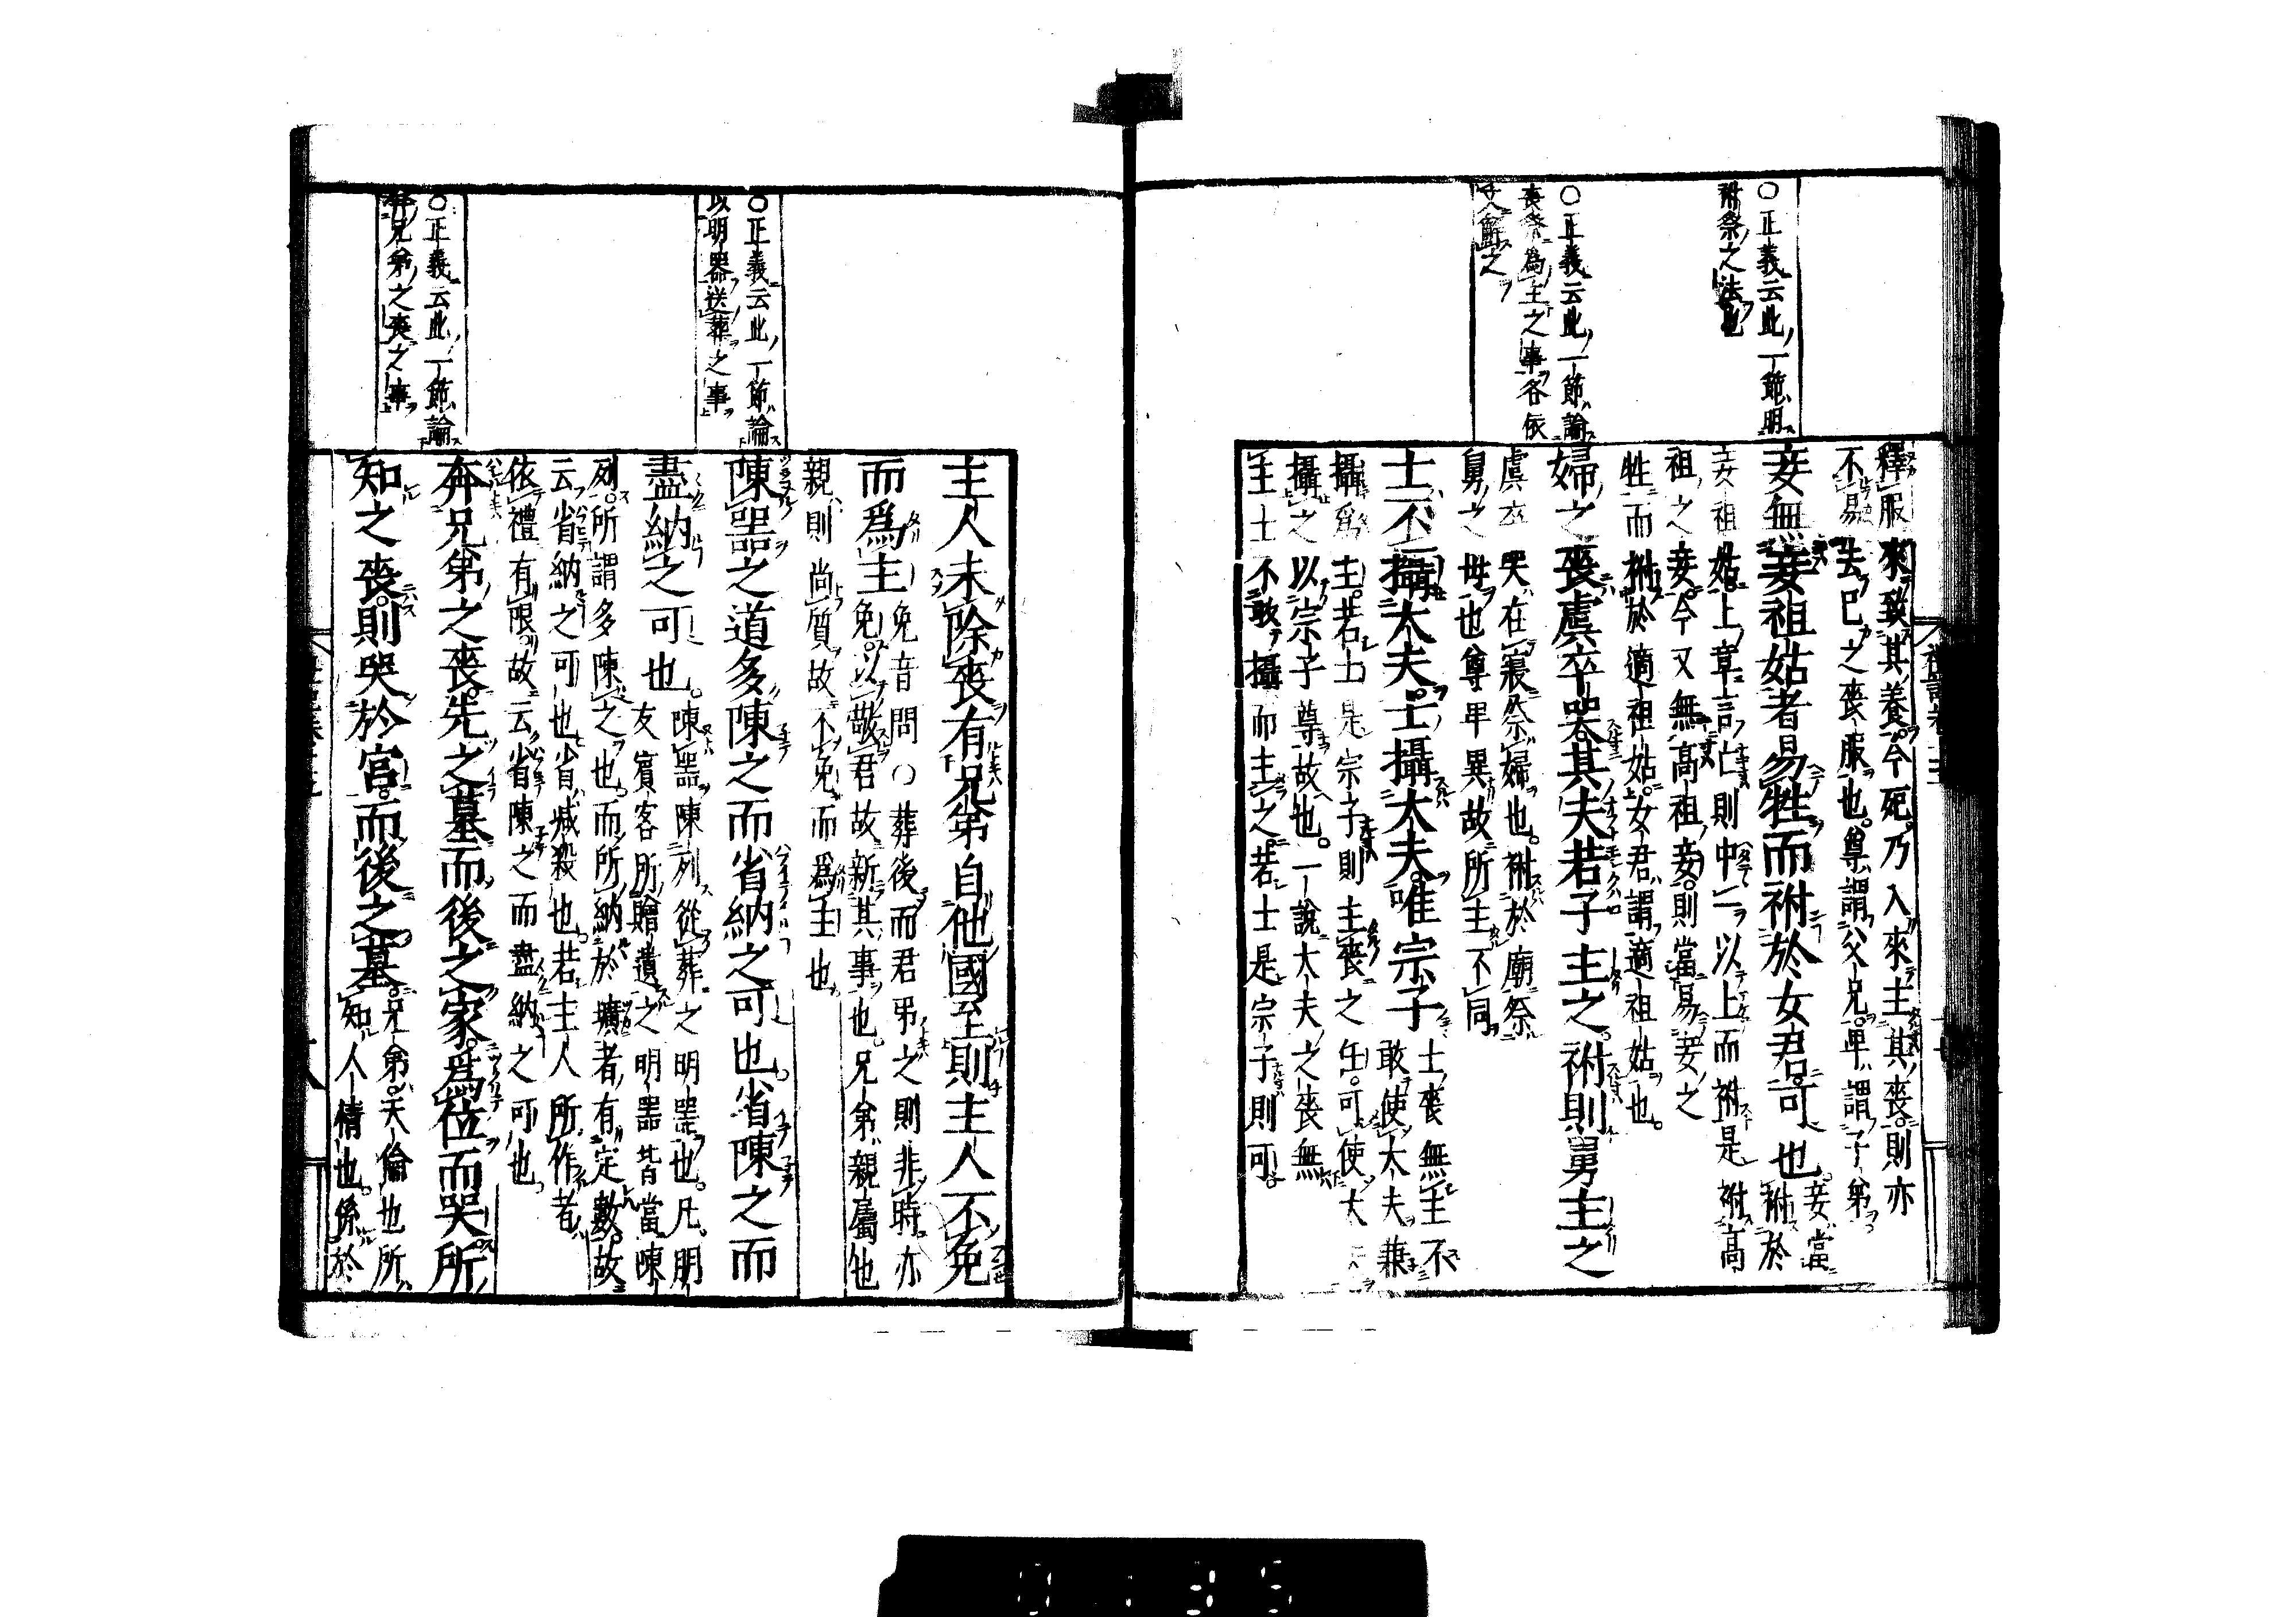 ○正義云此一節明
祔祭之法也
○正義云此一節論
喪祭爲主之事各依
文解之
釋服來致其養今死乃入來主其喪則亦
不易去已之喪服也尊謂父兄卑謂子弟
妾無妾祖姑者易牲而祔於女君可也妾當
祔於
妾祖姑上章言亡則中一以上而祔是祔高
祖之妾今又無高祖妾則當易妾之
牲而祔於適祖姑女君謂適祖姑也
婦之喪虞卒哭其夫若子主之祔則舅主之
虞卒哭在寢祭婦也祔於廟祭
舅之母也尊卑異故所主不同
士不攝大夫士攝大夫唯宗子士喪無主不
敢使大夫兼
攝爲主若士是宗子則主喪之任可使大夫
攝之以宗子尊故也一說大夫之喪無
主士不敢攝而主之若士是宗子則可
○正義云此一節論
以明器送葬之事
○正義云此一節論
奔兄弟之喪之事
主人未除喪有兄弟自他國至則主人不免
而爲主免音問○葬後而君弔之則非時亦
免以敬君故新其事也兄弟親屬也
親則尚質故不免而爲主也
陳器之道多陳之而省納之可也省陳之而
盡納之可也陳器陳列從葬之明器也凡朋
友賓客所贈遺之明器皆當陳
列所謂多陳之也而所納於壙者有定數故
云省納之可也省減殺也若主人所作者
依禮有限故云省陳之而盡納之可也
奔兄弟之喪先之墓而後之家爲位而哭所
知之喪則哭於宮而後之墓兄弟天倫也所
知人情也係於